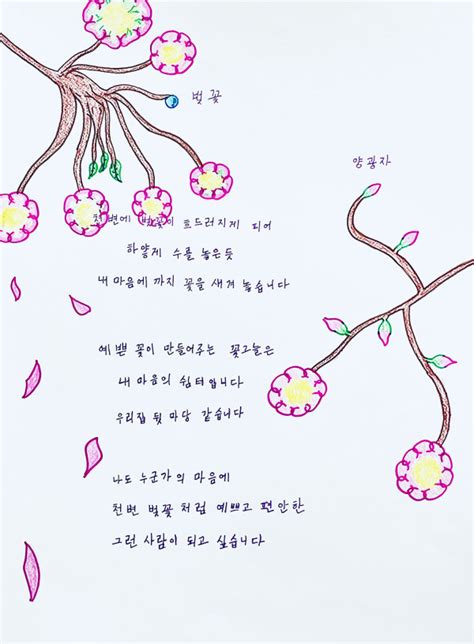 벚꽃
양광자
천변에 벚꽃이 흐드러지게 피어
하얗게 수를 놓은듯
내 마음에 까지 꽃을 새겨 놓습니다
예쁜 꽃이 만들어주는 꽃그늘은
내 마음의 쉼터입니다
우리집 뒷 마당 같습니다
나도 누군가의 마음에
천변 벚꽃 처럼 예쁘고 편안한
그런 사람이 되고 싶습니다